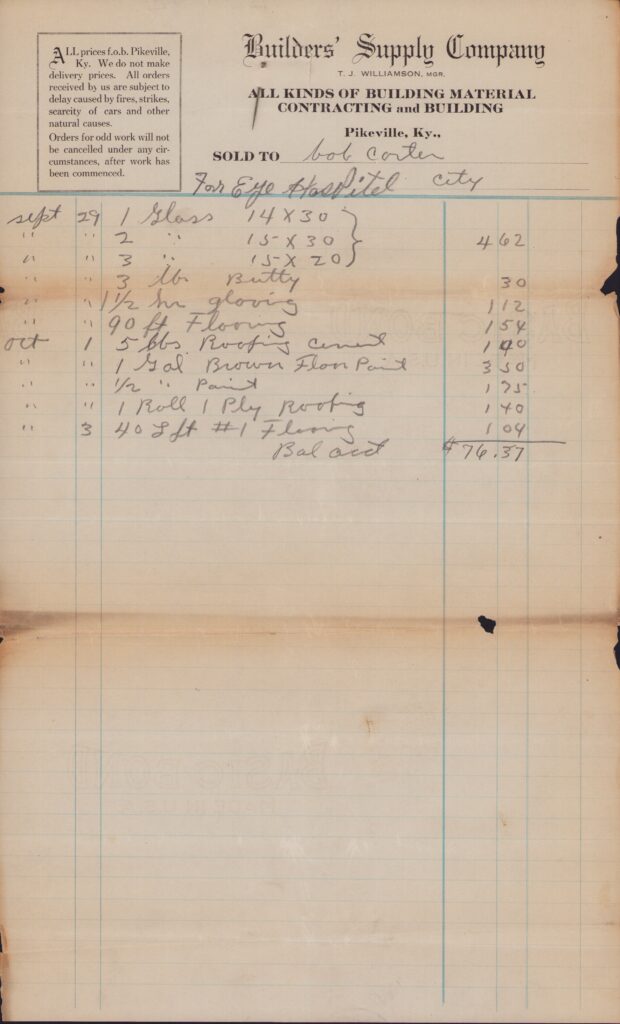 ALL prices f.o.b. Pikeville,
Ky. We do not make
delivery prices. All orders
received by us are subject to
delay caused by fires, strikes,
scarcity of cars and other
natural causes.
Orders for odd work will not
be cancelled under any cir-
cumstances, after work has
been commenced.
Builders' Supply Company
T. J. WILLIAMSON, MGR.
ALL KINDS OF BUILDING MATERIAL
CONTRACTING and BUILDING
Pikeville, Ky.,
SOLD TO bob Carter
For Eye Hospital City
Sept 29 1 Glass 14 X 30
" " 2 " 15 X 30 4 62
" " 3 " 15 X 20
" " 3 lbs Putty 30
" " 1 1/2 hr 1 12
" " 90 ft Flooring 1 54
Oct 1 5 lbs. Roofing cement 1 00
" " 1 Gal Brown Floor Paint 3 50
" " 1/2 " Paint 1 75
" " 1 Roll 1 Ply Roofing 1 40
" 3 40 ft #1 Flooring 1 04
Bal acct $76.37